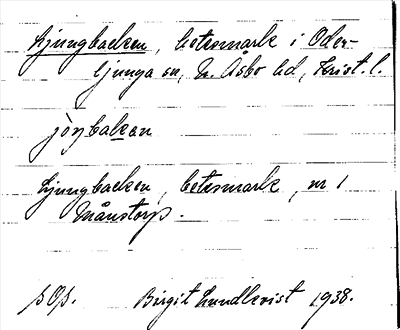 Ljungbacken, betesmark i Öder-
ljunga sn, N. Åsbo hd, Krist. l.
Ljungbacken, betesmark, nr 1
Månstorp.
s Op. Birgit Lundkvist 1938.